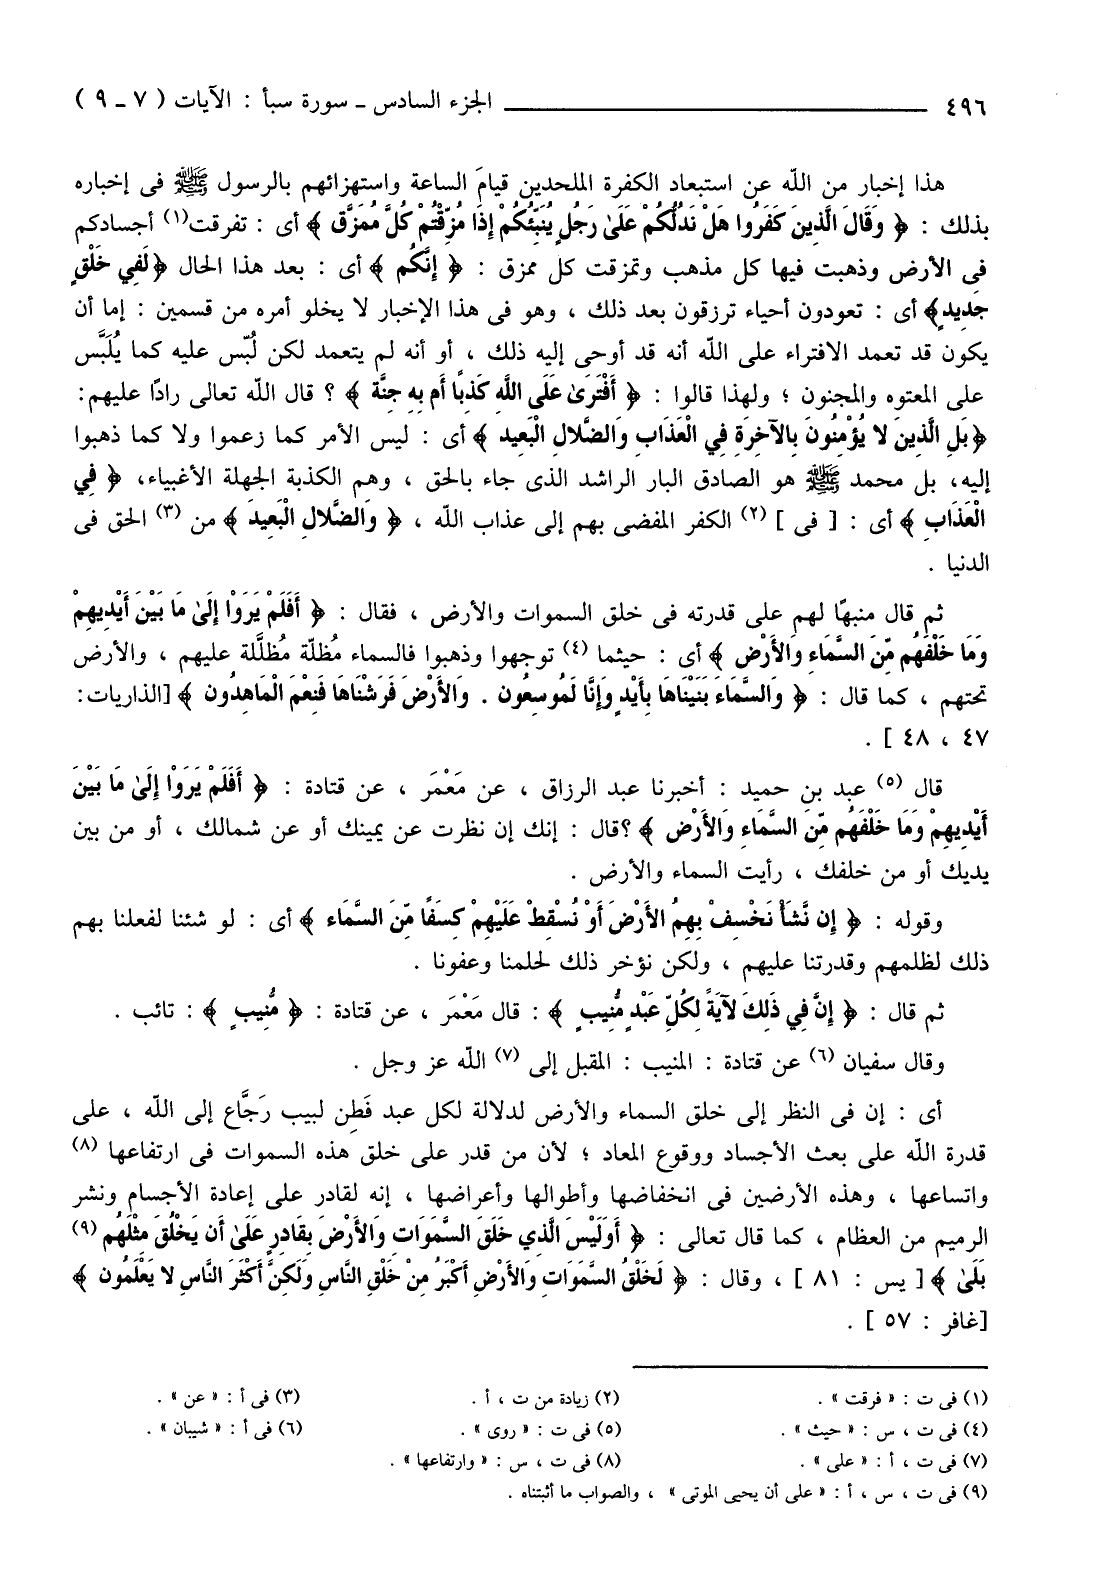 ٤٩٦ ــــــــــــ الجزء السادس ـ سورة سبأ : الآيات ( ٧ ـ ٩ )
هذا إخبار من الله عن استبعاد الكفرة الملحدين قيامَ الساعة واستهزائهم بالرسول ﷺ فى إخباره
بذلك : ﴿ وَقَالَ الَّذِينَ كَفَرُوا هَلْ نَدُلُّكُمْ عَلَىٰ رَجُلٍ يُنَبِّئُكُمْ إِذَا مُزِّقْتُمْ كُلَّ مُمَزَّق ﴾ أى : تفرقت(١) أجسادكم
فى الأرض وذهبت فيها كل مذهب وتمزقت كل ممزق : ﴿ إِنَّكُم ﴾ أى : بعد هذا الحال ﴿لَفِي خَلْقٍ
جَدِيدٍ﴾ أى : تعودون أحياء ترزقون بعد ذلك ، وهو فى هذا الإخبار لا يخلو أمره من قسمين : إما أن
يكون قد تعمد الافتراء على الله أنه قد أوحى إليه ذلك ، أو أنه لم يتعمد لكن لُبّس عليه كما يُلَبَّس
على المعتوه والمجنون ؛ ولهذا قالوا : ﴿ أَفْتَرَىٰ عَلَى اللَّهِ كَذِبًا أَم بِهِ جِنَّة ﴾ ؟ قال الله تعالى رادًا عليهم:
﴿بَلِ الَّذِينَ لا يُؤْمِنُونَ بِالآخِرَةِ فِي الْعَذَابِ وَالضَّلالِ الْبَعِيد ﴾ أى : ليس الأمر كما زعموا ولا كما ذهبوا
إليه، بل محمد ﷺ هو الصادق البار الراشد الذى جاء بالحق ، وهم الكذبة الجهلة الأغبياء، ﴿ فِي
الْعَذَاب ﴾ أى : [ فى ] (٢) الكفر المفضى بهم إلى عذاب الله ، ﴿ وَالضَّلالِ الْبَعِيد ﴾ من (٣) الحق فى
الدنيا .
ثم قال منبهًا لهم على قدرته فى خلق السموات والأرض ، فقال : ﴿ أَفَلَمْ يَرَوْا إِلَىٰ مَا بَيْنَ أَيْدِيهِمْ
وَمَا خَلْفَهُم مِّنَ السَّمَاءِ وَالأَرْض ﴾ أى : حيثما (٤) توجهوا وذهبوا فالسماء مُظلّة مُظلَّلة عليهم ، والأرض
تحتهم ، كما قال : ﴿ وَالسَّمَاءَ بَنَيْنَاهَا بِأَيْدٍ وَإِنَّا لَمُوسِعُون . وَالأَرْضَ فَرَشْنَاهَا فَنِعْمَ الْمَاهِدُون ﴾ [الذاريات:
٤٧ ، ٤٨ ] .
قال (٥) عبد بن حميد : أخبرنا عبد الرزاق ، عن مَعْمَر ، عن قتادة : ﴿ أَفَلَمْ يَرَوْا إِلَىٰ مَا بَيْنَ
أَيْدِيهِمْ وَمَا خَلْفَهُم مِّنَ السَّمَاءِ وَالأَرْض ﴾ ؟قال : إنك إن نظرت عن يمينك أو عن شمالك ، أو من بين
يديك أو من خلفك ، رأيت السماء والأرض .
وقوله : ﴿ إِن نَّشَأْ نَخْسِفْ بِهِمُ الأَرْضَ أَوْ نُسْقِطْ عَلَيْهِمْ كِسَفًا مِّنَ السَّمَاء ﴾ أى : لو شئنا لفعلنا بهم
ذلك لظلمهم وقدرتنا عليهم ، ولكن نؤخر ذلك لحلمنا وعفونا .
ثم قال : ﴿ إِنَّ فِي ذَلِكَ لآيَةً لِّكُلِّ عَبْدٍ مُّنِيبٍ ﴾ : قال مَعْمَر ، عن قتادة : ﴿ مُّنِيبٍ ﴾ : تائب .
وقال سفيان (٦) عن قتادة : المنيب : المقبل إلى (٧) الله عز وجل .
أى : إن فى النظر إلى خلق السماء والأرض لدلالة لكل عبد فَطِن لبيب رَجَّاع إلى الله ، على
قدرة الله على بعث الأجساد ووقوع المعاد ؛ لأن من قدر على خلق هذه السموات فى ارتفاعها (٨)
واتساعها ، وهذه الأرضين فى انخفاضها وأطوالها وأعراضها ، إنه لقادر على إعادة الأجسام ونشر
الرميم من العظام ، كما قال تعالى : ﴿ أَوَلَيْسَ الَّذِي خَلَقَ السَّمَوَاتِ وَالأَرْضَ بِقَادِرٍ عَلَىٰ أَن يَخْلُقَ مِثْلَهُم (٩)
بَلَىٰ ﴾ [ يس : ٨١ ] ، وقال : ﴿ لَخَلْقُ السَّمَوَاتِ وَالأَرْضِ أَكْبَرُ مِنْ خَلْقِ النَّاسِ وَلَكِنَّ أَكْثَرَ النَّاسِ لا يَعْلَمُون ﴾
[غافر : ٥٧ ] .
(١) فى ت : « فرقت » . (٢) زيادة من ت ، أ . (٣) فى أ : « عن » .
(٤) فى ت ، س : « حيث » . (٥) فى ت : « روى » . (٦) فى أ : « شيبان » .
(٧) فى ت ، أ : « على » . (٨) فى ت ، س : « وارتفاعها » .
(٩) فى ت ، س ، أ : « على أن يحيى الموتى » ، والصواب ما أثبتناه .